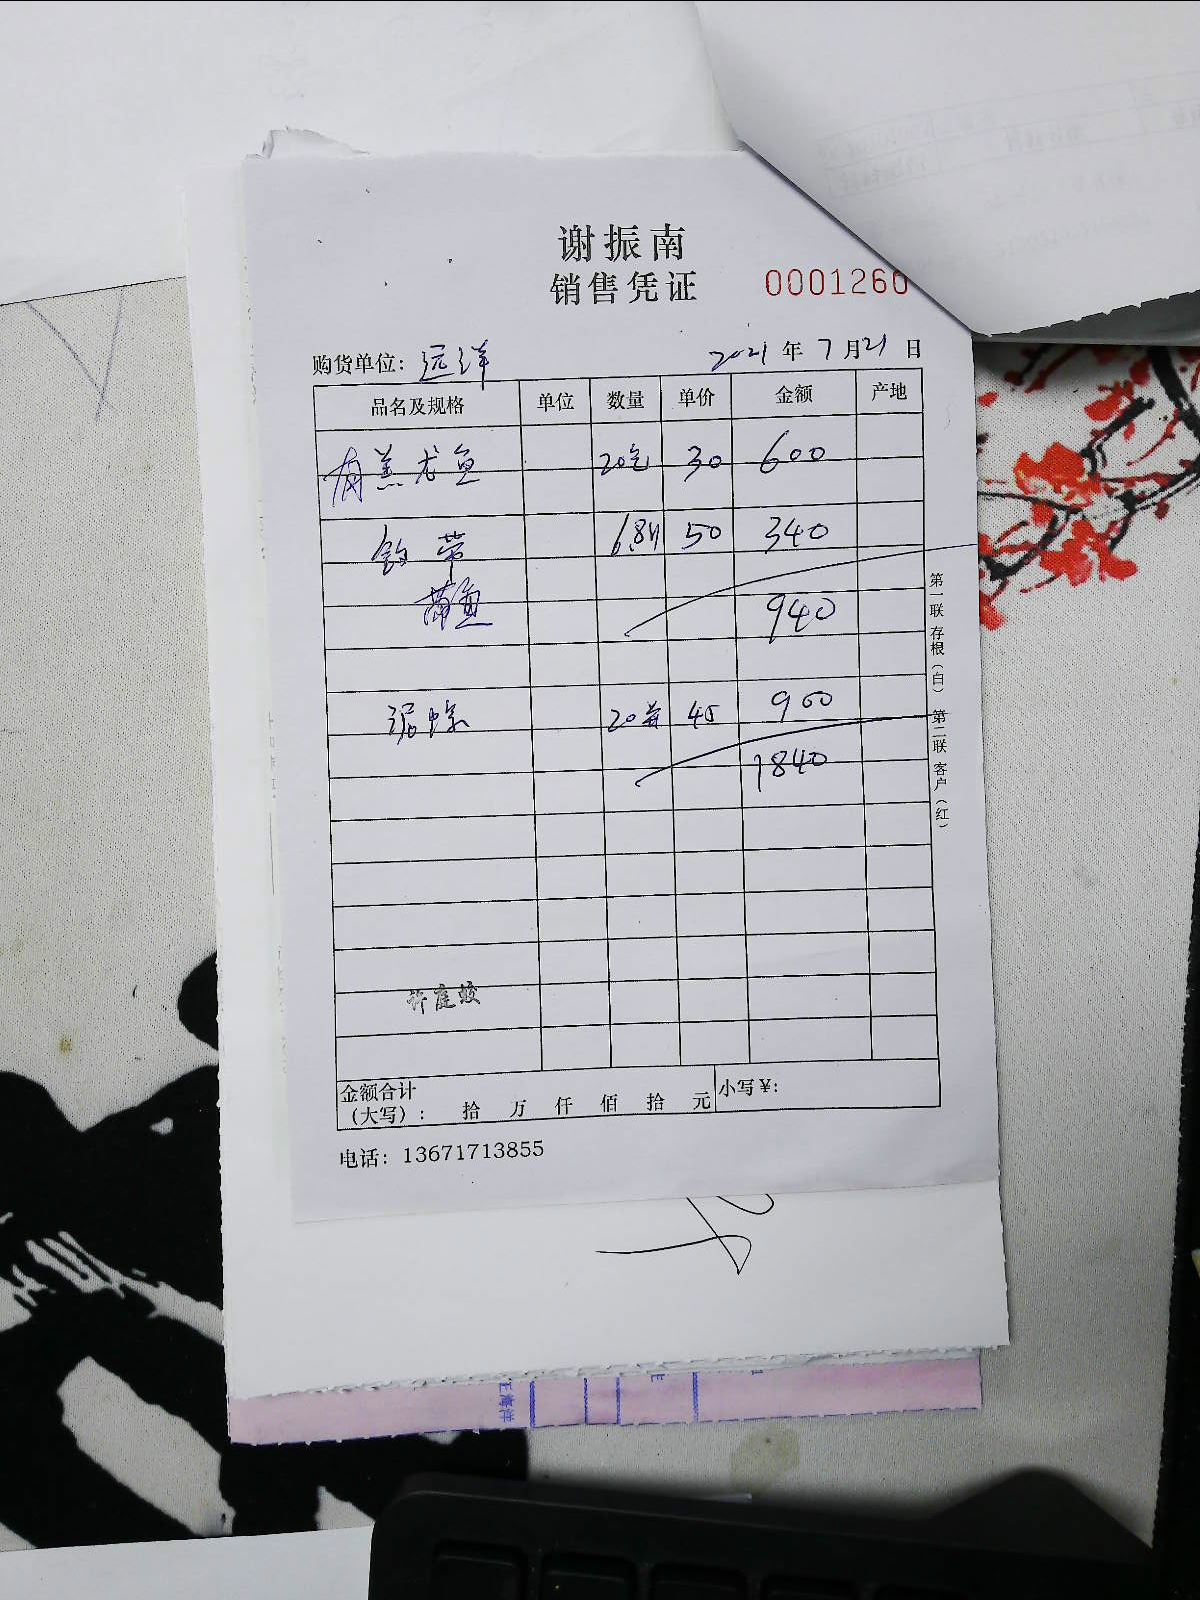 谢振南
销售凭证 0001260
购货单位: 远洋 2021 年 7 月 21 日
品名及规格 单位 数量 单价 金额 产地
龙鱼 20包 30 600
钓带 6.8斤 50 340
带鱼 940
泥螺 20 45 900
1840
许庭蛟
金额合计
(大写): 拾 万 仟 佰 拾 元 小写¥:
电话: 13671713855
第一联 存根(白) 第二联 客户(红)